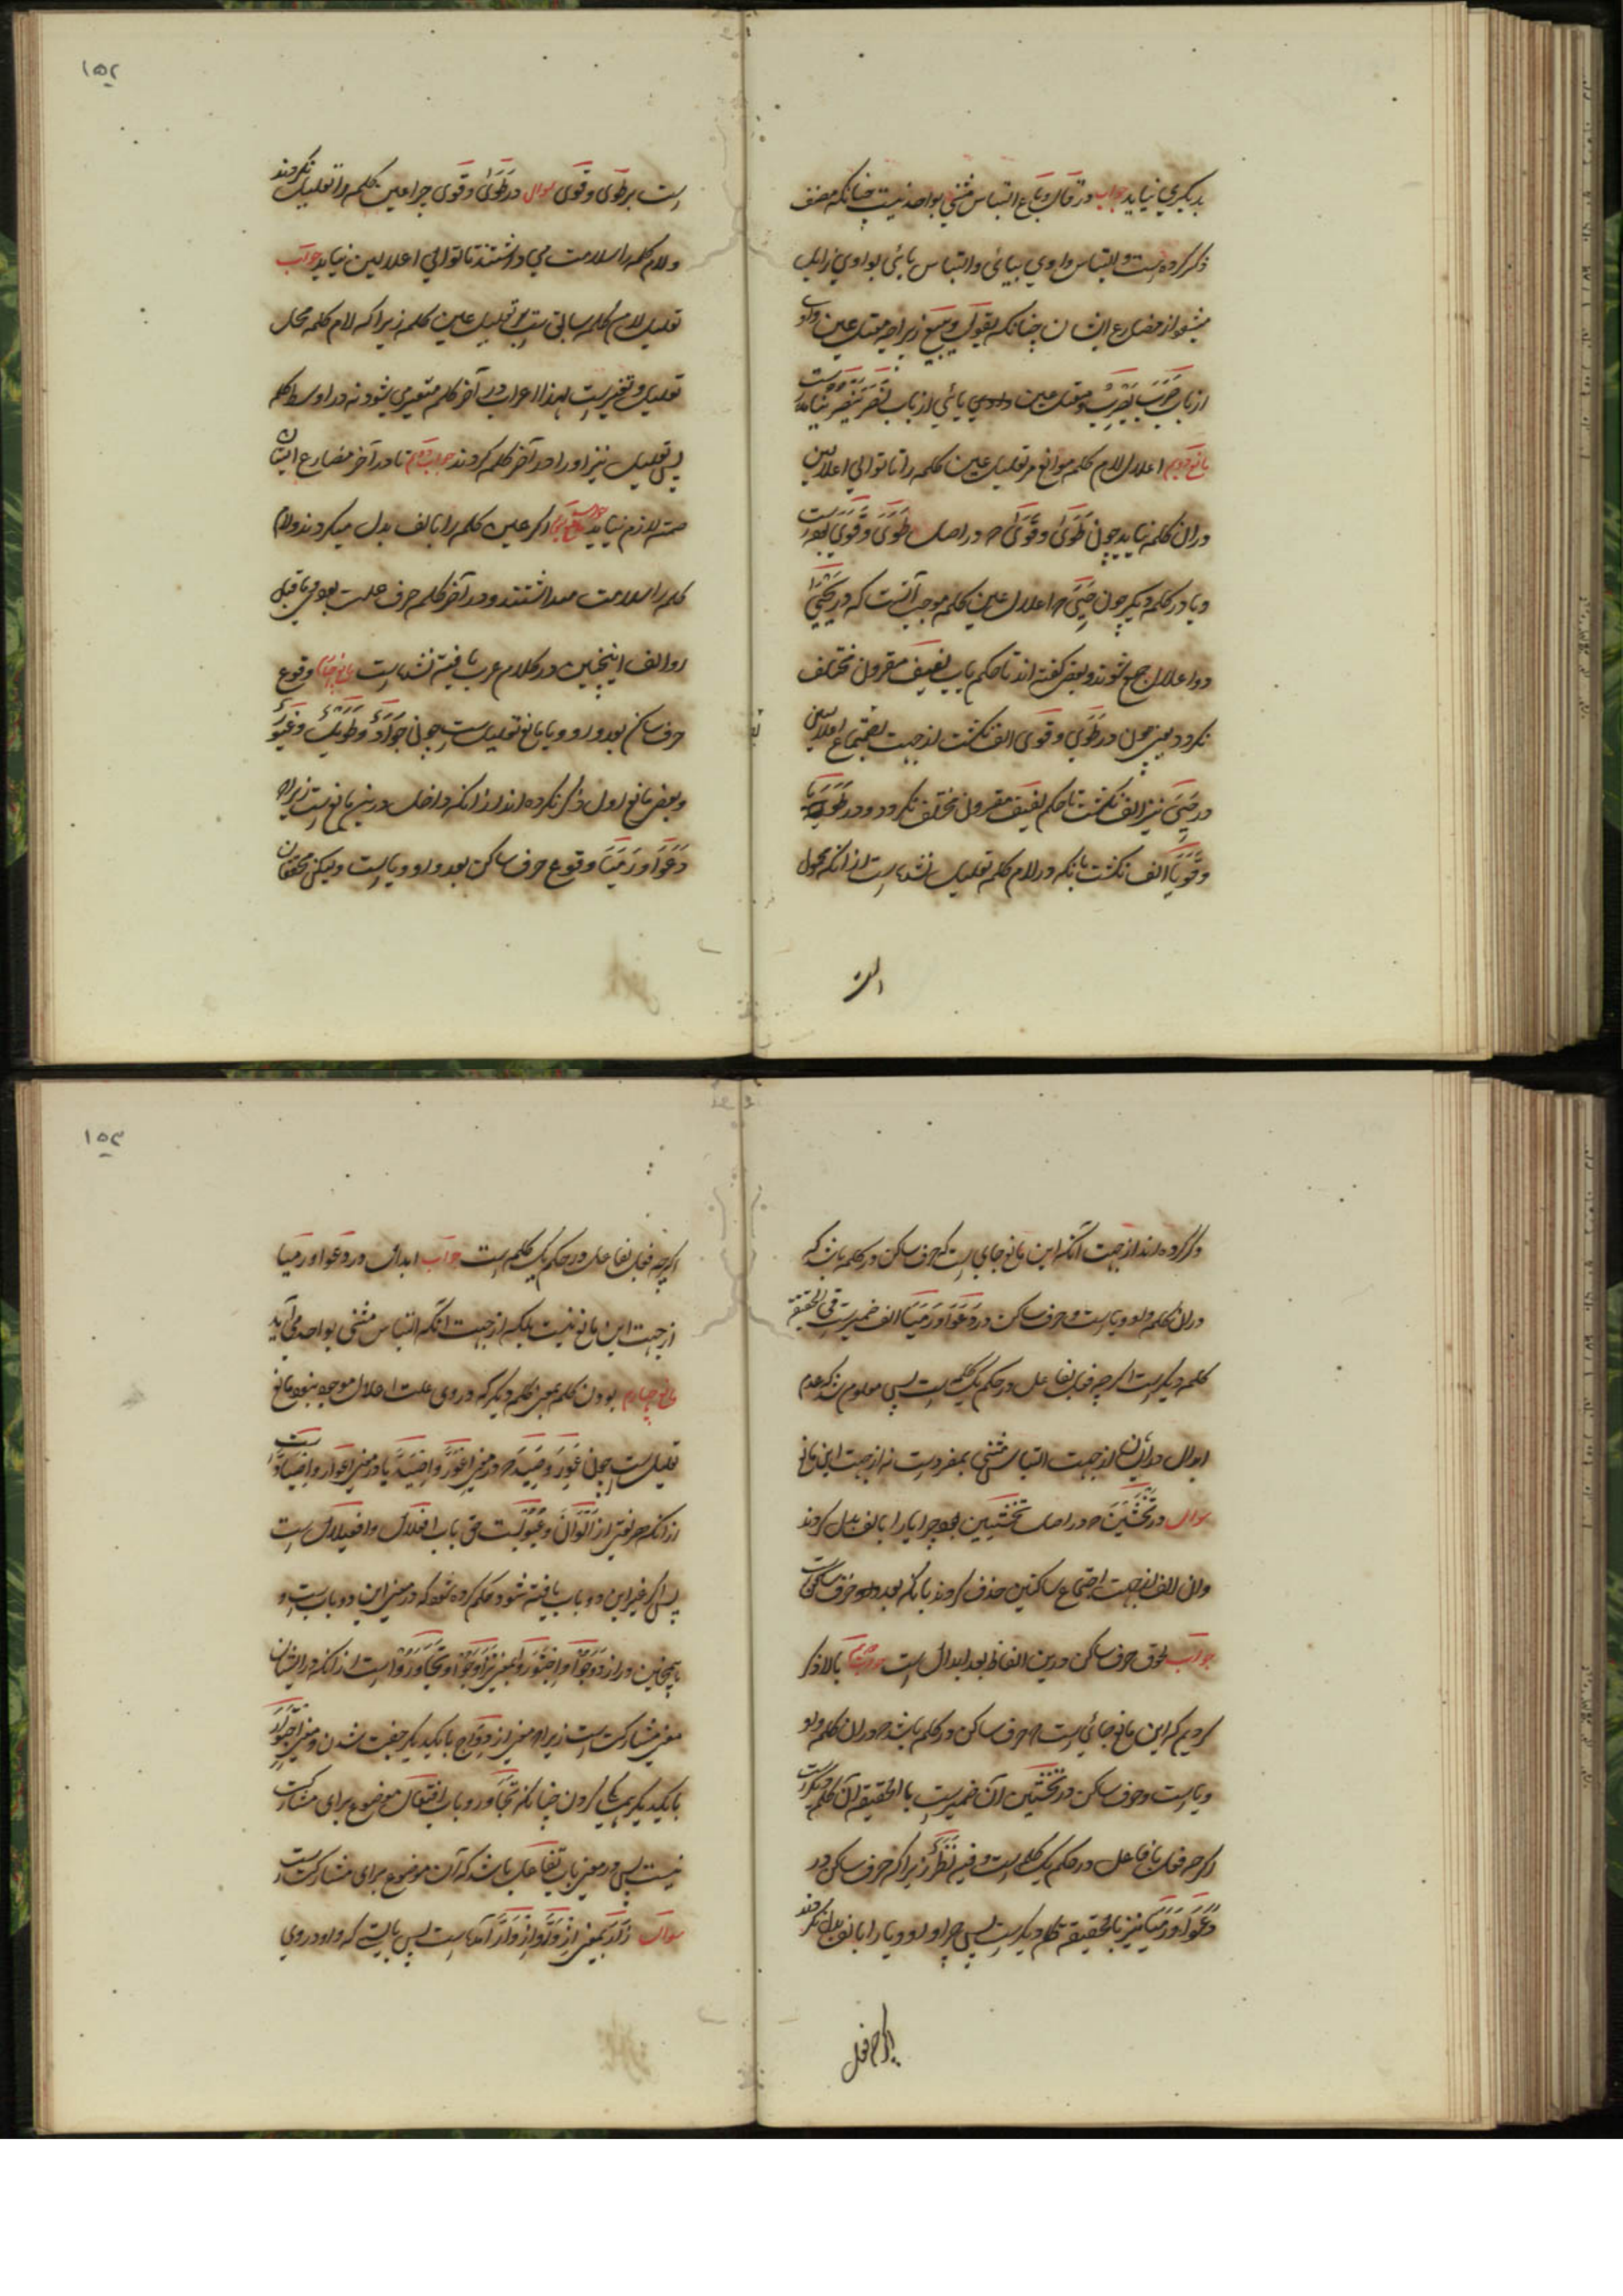 بدیگری نیاید جواب در قال و باع التباس مثنی بواحد نیست چنانکه مصنف
ذکر کرده است و التباس واوی بیائی و التباس یائی بواوی زایل
میشود از مضارع ایشان چنانکه یقول و یبیع زیراچه معتل عین واوی
از باب ضَرَبَ یَضْرِبُ و معتل عین یائی از باب نَصَرَ یَنْصُرُ نیامده است
مانع دویم اعلال لام کلمه موانع مر تعلیل عین کلمه را تا توالی اعلالین
دران کلمه نیاید چون طَوَی و قَوَی که در اصل طَوَیَ و قَوَیَ بوده است
و یا در کلمه دیگر چون حَیِیَ که اعلال عین کلمه موجب آنست که در یَحْیَیُ
دو اعلال جمع شوند و بعضی گفته اند تا حکم باب لفیف مقرون مختلف
نگردد یعنی چون در طَوَی و قَوَی الف نگشت از جهت اجتماع اعلالین
در حَیِیَ نیز الف نگشت تا حکم لفیف مقرون مختلف نگردد و در طَوَیَا
و قَوَیَا الف نگشت بانکه در لام کلمه تعلیل نشده است از آنکه محمول
است
۱۵۲
است بر طَوَی و قَوَی سوال در طَوَی و قَوَی چرا عین کلمه را تعلیل نکردند
و لام کلمه را سلامت می داشتند تا توالی اعلالین نیاید جواب
تعلیل لام کلمه سابق است بر تعلیل عین کلمه زیراکه لام کلمه محل
تعلیل و تغیر است لهذا اعراب در آخر کلمه متغیر میشود نه در اوسط کلمه
پس تعلیل نیز اور ا در آخر کلمه کردند جواب دویم تا در آخر مضارع ایشان
ضمه لازم نیاید اگر عین کلمه را بالف بدل میکردند و لام
کلمه را سلامت میداشتند و در آخر کلمه حرف علت بودی ماقبل
او الف اینچنین در کلام عرب یافته نشده است مانع وقوع
حرف ساکن بعد واو و یا مانع تعلیل است چون جَوَادٌ و طَوِیلٌ و غَیُورٌ
و بعضی مانع اول ذکر نکرده اند از آنکه داخل درین مانع است زیراچه
دَعَوَا و رَمَیَا وقوع حرف ساکن بعد واو و یا است و لیکن محققان
ذکر کرده اند از جهت آنکه این مانع جای است که حرف ساکن در کلمه باشد که
دران کلمه واو و یا است و حرف ساکن در دَعَوَا و رَمَیَا الف ضمیر است فی الحقیقة
کلمه دیگر است اگرچه فعل بفاعل در حکم یک کلمه است پس معلوم شد که عدم
ابدال در ایشان از جهت التباس مثنی بمفرد است نه از جهت این مانع
سوال در تَخْشَیْنَ که در اصل تَخْشَیِینَ بود چرا یا را بالف بدل کردند
و ان الف از جهت اجتماع ساکنین حذف کردند بانکه بعد حرف ساکن است
جواب لحوق حرف ساکن درین الفاظ بعد ابدال است جواب دویم بالا ذکر
کردیم که این مانع جائی است که حرف ساکن در کلمه باشد که دران کلمه واو
و یا است و حرف ساکن در تَخْشَیْنَ آن ضمیر است بالحقیقة آن کلمه دیگر است
اگرچه فعل با فاعل در حکم یک کلمه است و فیه نَظَرٌ زیراکه حرف ساکن در
دَعَوَا و رَمَیَا نیز بالحقیقة کلمه دیگر است پس چرا واو و یا را بالف بدل نکردند
اگرچه فعل
۱۵۳
اگرچه فعل بفاعل در حکم یک کلمه است جواب ابدال در دعوا و رمیا
از جهت این مانع نیست بلکه از جهت آنکه التباس مثنی بواحد می آید
مانع چهارم بودن کلمه بمعنی کلمه دیگر که در وی علت اعلال موجود نبود مانع
تعلیل است چون عَوِرَ و صَیِدَ که در معنی اِعْوَرَّ و اِصْیَدَّ یا در معنی اِعْوَارَّ و اِصْیَادَّ است
از آنکه هر لغتی از اَلْوَانَ و عُیُوبَ است حق باب افعلال و افعیلال است
پس اگر غیر این دو باب یافته شود حکم کرده شود که در معنی این دو باب است و
همچنین در اِزْدَوَجُوا و اِجْتَوَرُوا بمعنی تَزَاوَجُوا و تَجَاوَرُوا است از آنکه در ایشان
معنی مشارکت است زیراچه معنی ازدواج با یکدیگر جفت شدن و معنی اِجْتِوَار
با یکدیگر همسایگی کردن چنانکه تجاور و باب افتعال موضوع برای مشارکت
نیست پس در معنی باب تفاعل باشد که آن موضوع برای مشارکت است
سوال زَارَ بمعنی اِزْوَرَّ و اِزْوَارَّ آمده است پس بایست که واو در وی